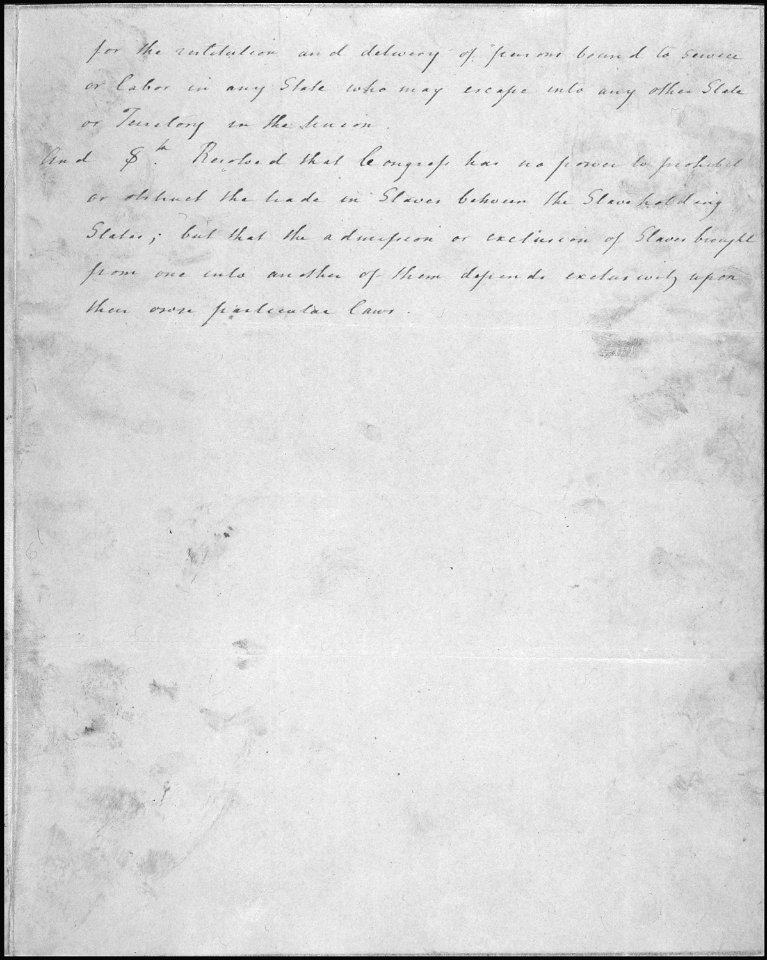 for the restitution and delivery of persons bound to service
or labor in any State who may escape into any other State
or Territory in the Union.
And 8th. Resolved that Congress has no power to prohibit
or obstruct the trade in Slaves between the Slaveholding
States; but that the admission or exclusion of Slaves brought
from one into another of them depends exclusively upon
their own particular laws.